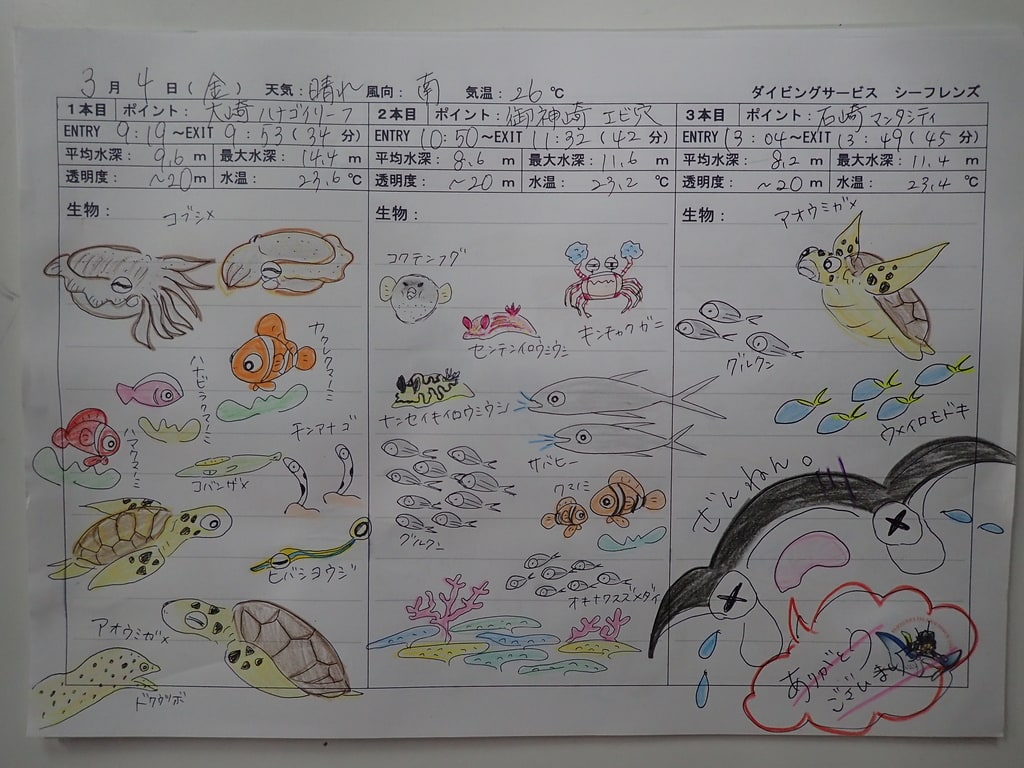 3月4日(金) 天気:晴れ 風向:南 気温:26℃ ダイビングサービス シーフレンズ
1本目 ポイント:大崎ハナゴイリーフ
ENTRY 9:19~EXIT 9:53(34分)
平均水深: 9.6 m 最大水深: 14.4 m
透明度: ~20m 水温: 23.6 ℃
生物:
コブシメ
カクレクマノミ
ハナビラクマノミ
ハマクマノミ
チンアナゴ
コバンザメ
ヒバシヨウジ
アオウミガメ
ドクウツボ
2本目 ポイント:御神崎 エビ穴
ENTRY 10:50~EXIT 11:32(42分)
平均水深: 8.6 m 最大水深: 11.6 m
透明度: ~20 m 水温: 23.2 ℃
生物:
コクテンフグ
キンチャクガニ
センテンイロウミウシ
ナンセイキイロウミウシ
サバヒー
クマノミ
グルクン
オキナワスズメダイ
3本目 ポイント:石崎 マンタシティ
ENTRY 13:04~EXIT 13:49(45分)
平均水深: 8.2 m 最大水深: 11.4 m
透明度: ~20 m 水温: 23.4 ℃
生物:
アオウミガメ
グルクン
ウメイロモドキ
ざんねん。
ありがとう
ございました